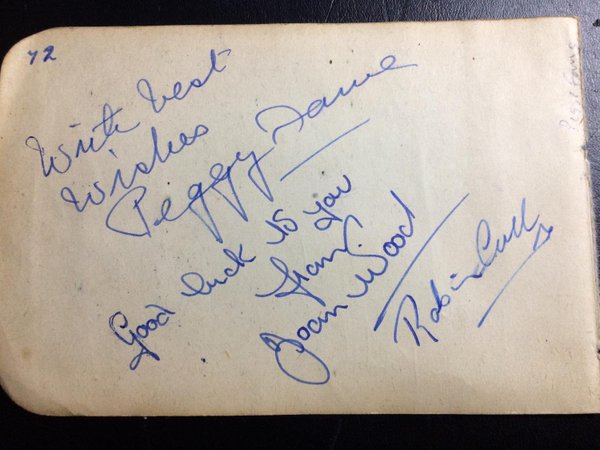 72
With best
Wishes
Peggy Fame
Good luck to you
from
Joan Wood
Robin